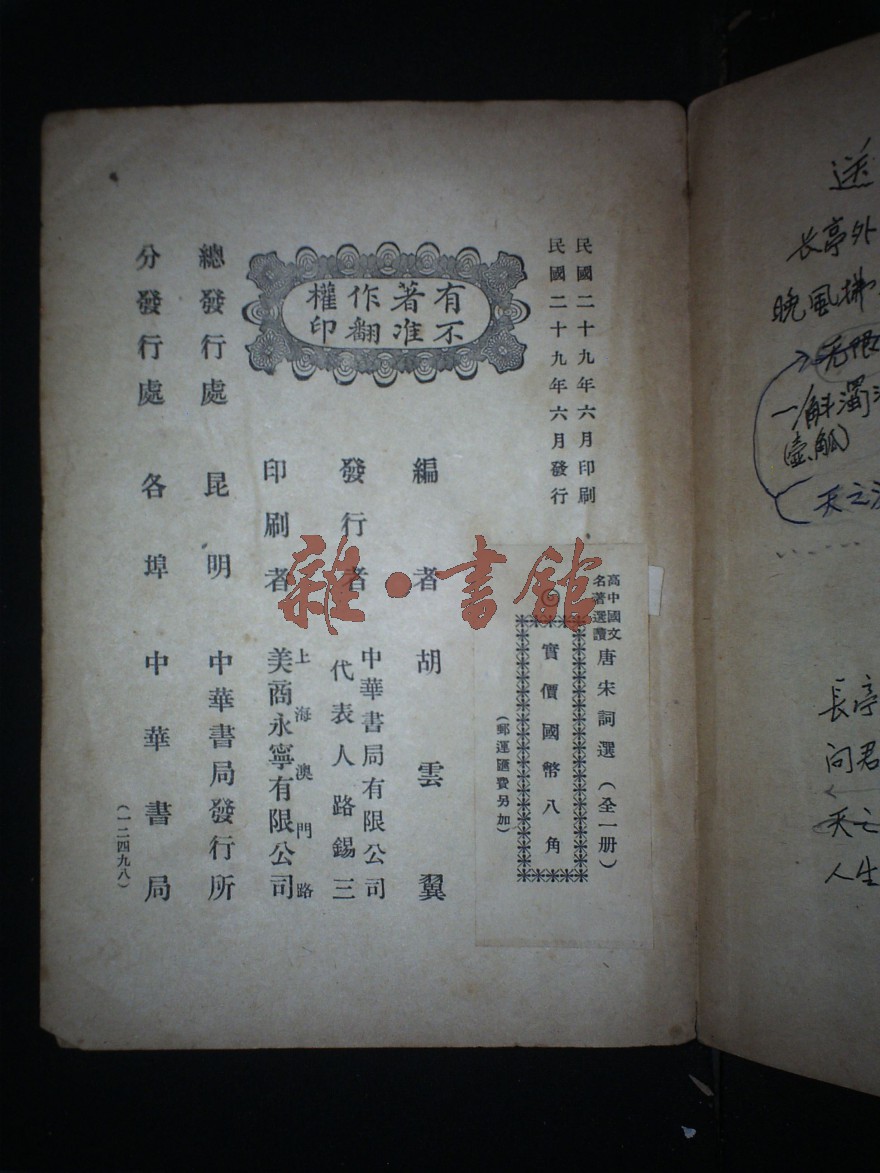 民國二十九年六月印刷
民國二十九年六月發行
有著作權
不准翻印
高中國文
名著選讀
唐宋詞選（全一册）
實價國幣八角
（郵運匯費另加）
編者 胡雲翼
發行者 中華書局有限公司
代表人路錫三
印刷者 上海澳門路
美商永寧有限公司
總發行處 昆明 中華書局發行所
分發行處 各埠 中華書局
（一二四九八）
雜·書館
送
长亭外
晚風拂
一斛濁
(壺觚)
天之
長亭
问君
天之
人生